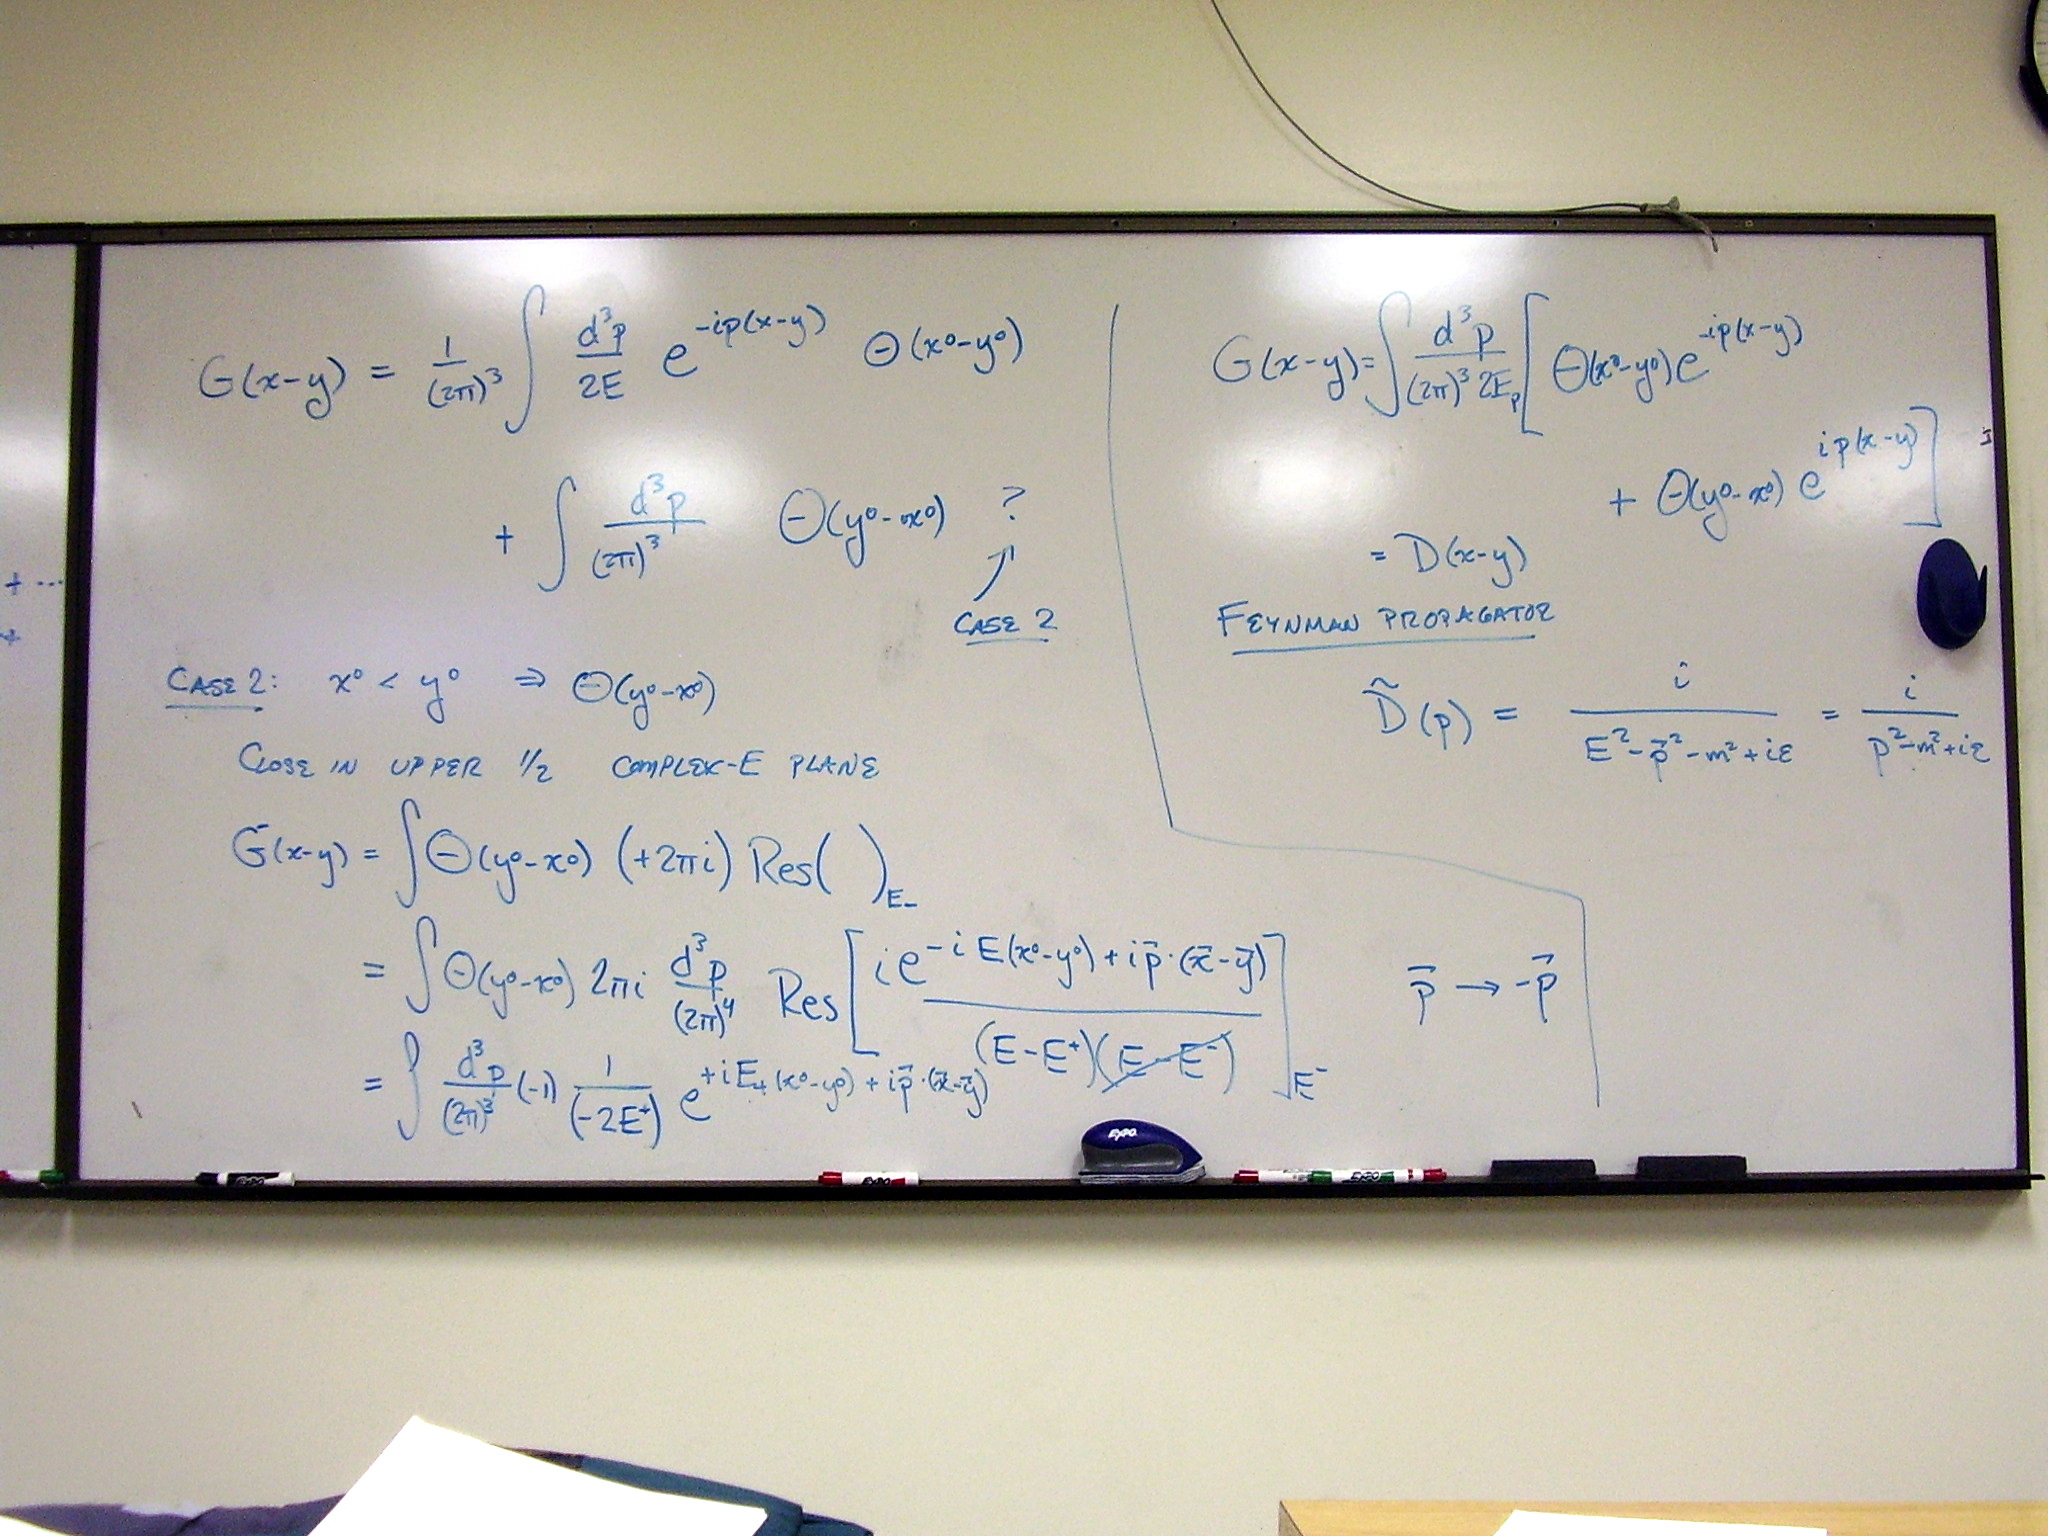 + ...
G(x-y) = 1/(2π)³ ∫ d³p/2E e^{-ip(x-y)} Θ(x⁰-y⁰)
+ ∫ d³p/(2π)³ Θ(y⁰-x⁰) ?
CASE 2
CASE 2: x⁰ < y⁰ ⇒ Θ(y⁰-x⁰)
CLOSE IN UPPER 1/2 COMPLEX-E PLANE
G(x-y) = ∫ Θ(y⁰-x⁰) (+2πi) Res( )_{E_-}
= ∫ Θ(y⁰-x⁰) 2πi d³p/(2π)⁴ Res[ i e^{-iE(x⁰-y⁰)+i\vec{p}·(\vec{x}-\vec{y})} / (E-E⁺)(E-E⁻) ]_{E⁻}
\vec{p} → -\vec{p}
= ∫ d³p/(2π)³ (-1) 1/(-2E⁺) e^{+iE_+(x⁰-y⁰)+i\vec{p}·(\vec{x}-\vec{y})}
G(x-y) = ∫ d³p/(2π)³2E_p [ Θ(x⁰-y⁰) e^{-ip(x-y)}
+ Θ(y⁰-x⁰) e^{ip(x-y)} ]
= D(x-y)
FEYNMAN PROPAGATOR
\tilde{D}(p) = i/(E²-\vec{p}²-m²+iε) = i/(p²-m²+iε)
EXPO
EXPO
EXPO
EXPO